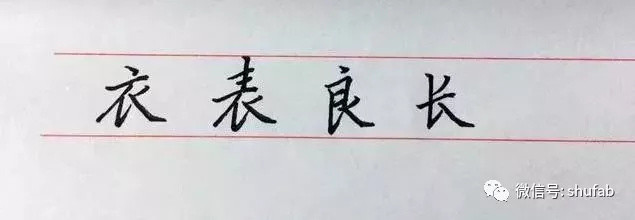 衣表良长
微信号: shufab